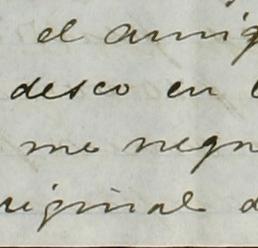 el amig
desco en
me negu
riginal d